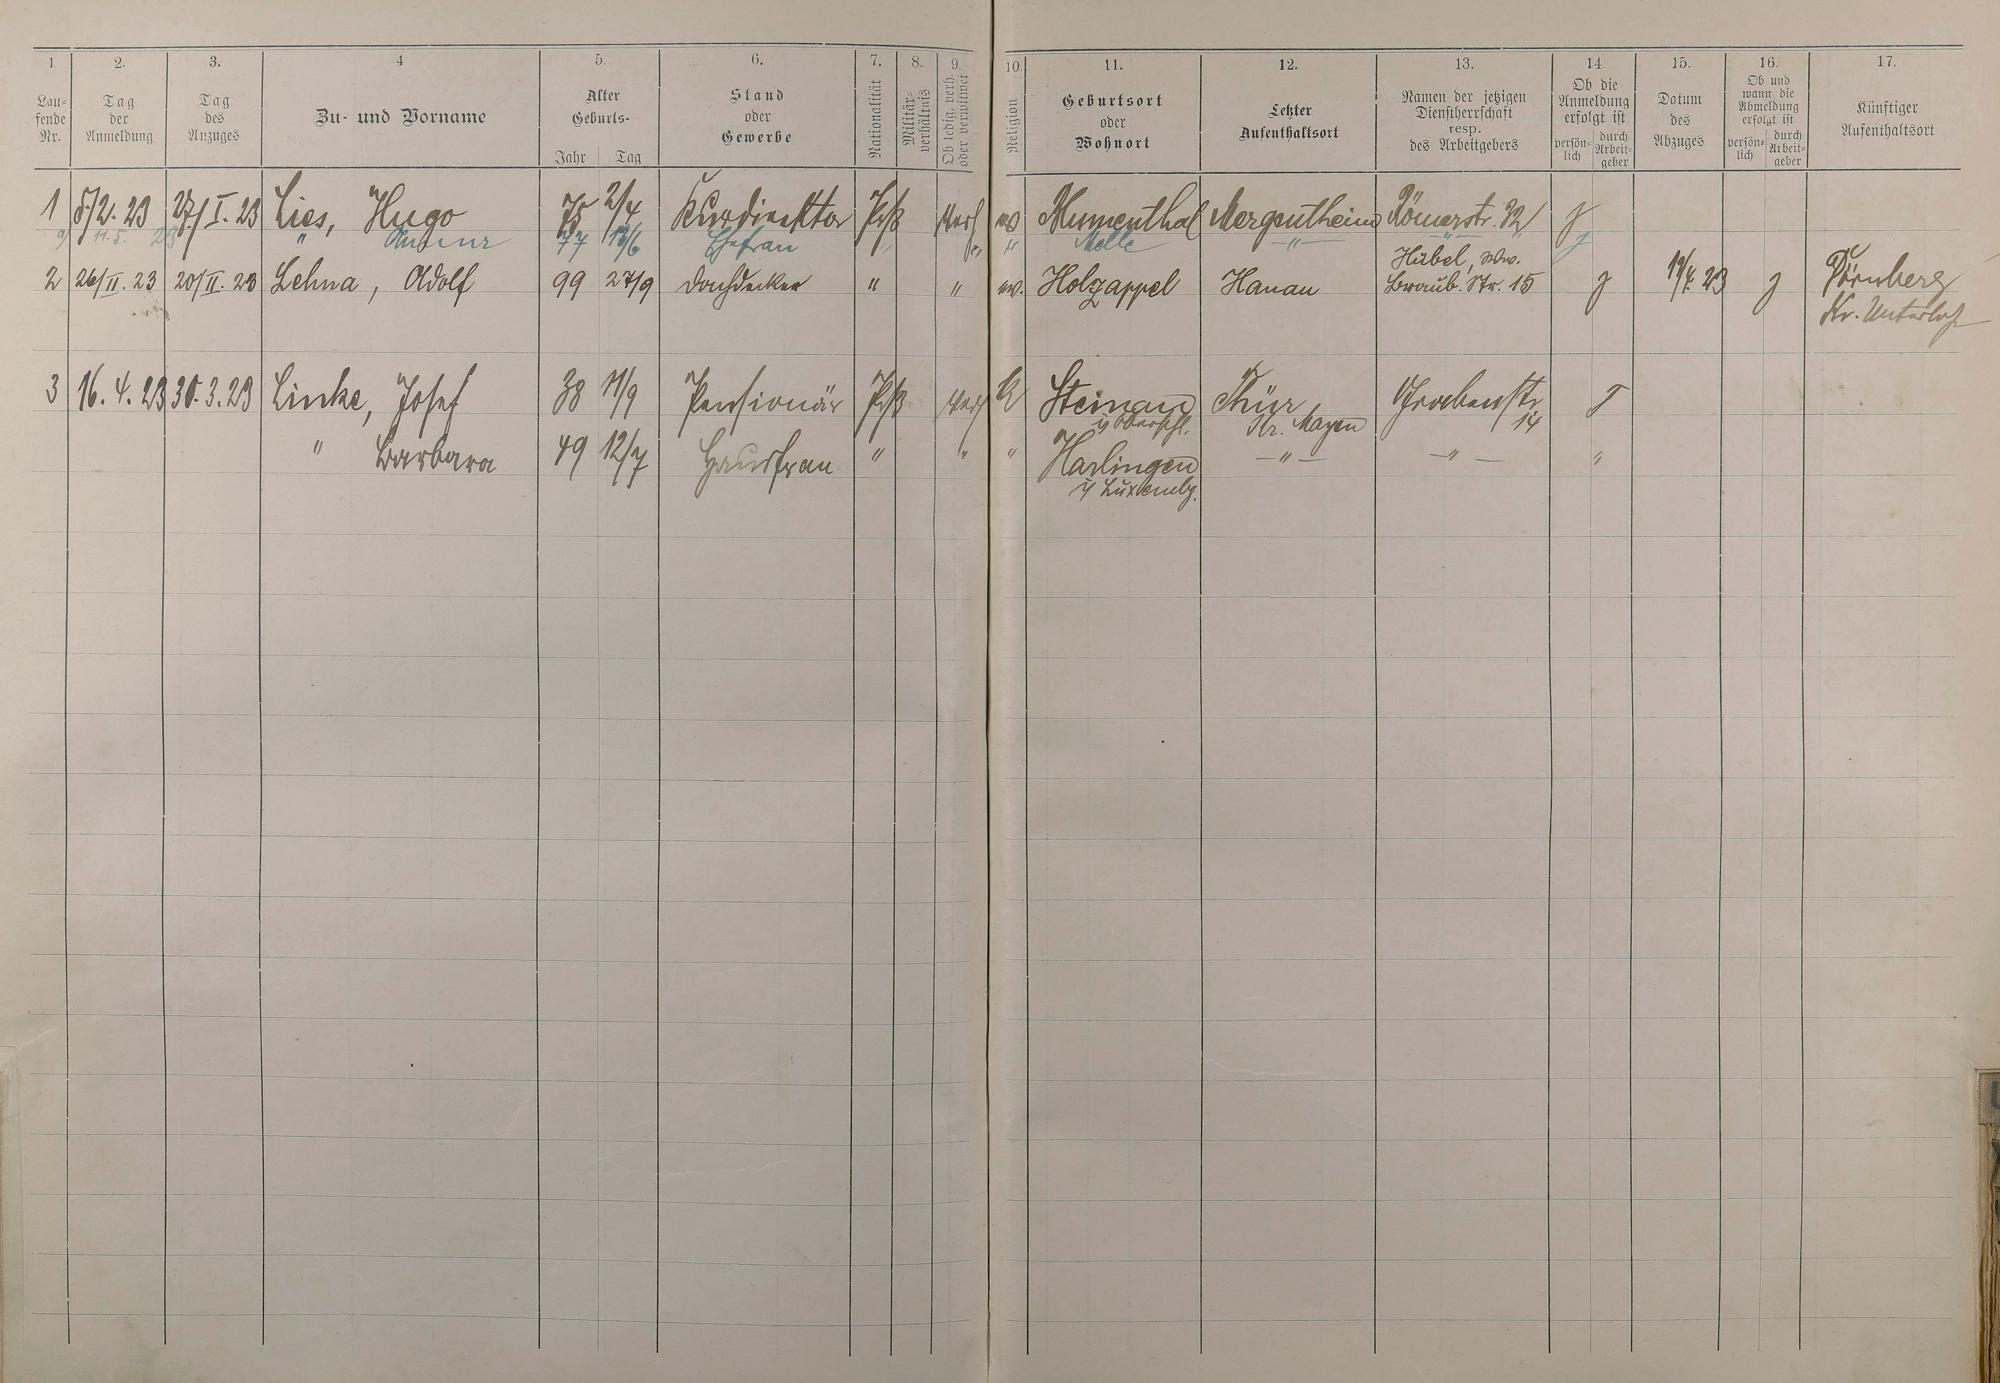 1 2. 3. 4 5. 6. 7. 8. 9. 10. 11. 12. 13. 14. 15. 16. 17.
Lau-
fende
Nr.
Tag
der
Anmeldung
Tag
des
Anzuges
Zu- und Vorname
Alter
Geburts-
Jahr Tag
Stand
oder
Gewerbe
Nationalität
Militär-
verhältnis
Ob ledig, verh.
oder verwitwet
Religion
Geburtsort
oder
Wohnort
Letzter
Aufenthaltsort
Namen der jetzigen
Dienstherrschaft
resp.
des Arbeitgebers
Ob die
Anmeldung
erfolgt ist
persön-
lich
durch
Arbeit-
geber
Datum
des
Abzuges
Ob und
wann die
Abmeldung
erfolgt ist
persön-
lich
durch
Arbeit-
geber
Künftiger
Aufenthaltsort
1 5/2. 23 27/I. 23 Lies, Hugo 75 2/4 Kurdirektor Prß verh ev Mumenthal Mergentheim Römerstr. 32 j
a) 11. 5. 23 " 77 13/6 Ehefrau " " " Melle " " j
2 26/II. 23 20/II. 23 Lehna, Adolf 99 27/9 Dachdecker " " ev. Holzappel Hanau Hübel, Ww.
Braub. Str. 15 j 19/4. 23 j Dörnberg
Kr. Unterlah
3 16. 4. 23 30. 3. 23 Linke, Josef 38 11/9 Pensionär Prß verh k Steinau
i/ Oberschl. Thür
Kr. Mayen Grabenstr
14 J
" Barbara 49 12/7 Hausfrau " " " Harlingen
i/ Luxembg. — " — — " — "